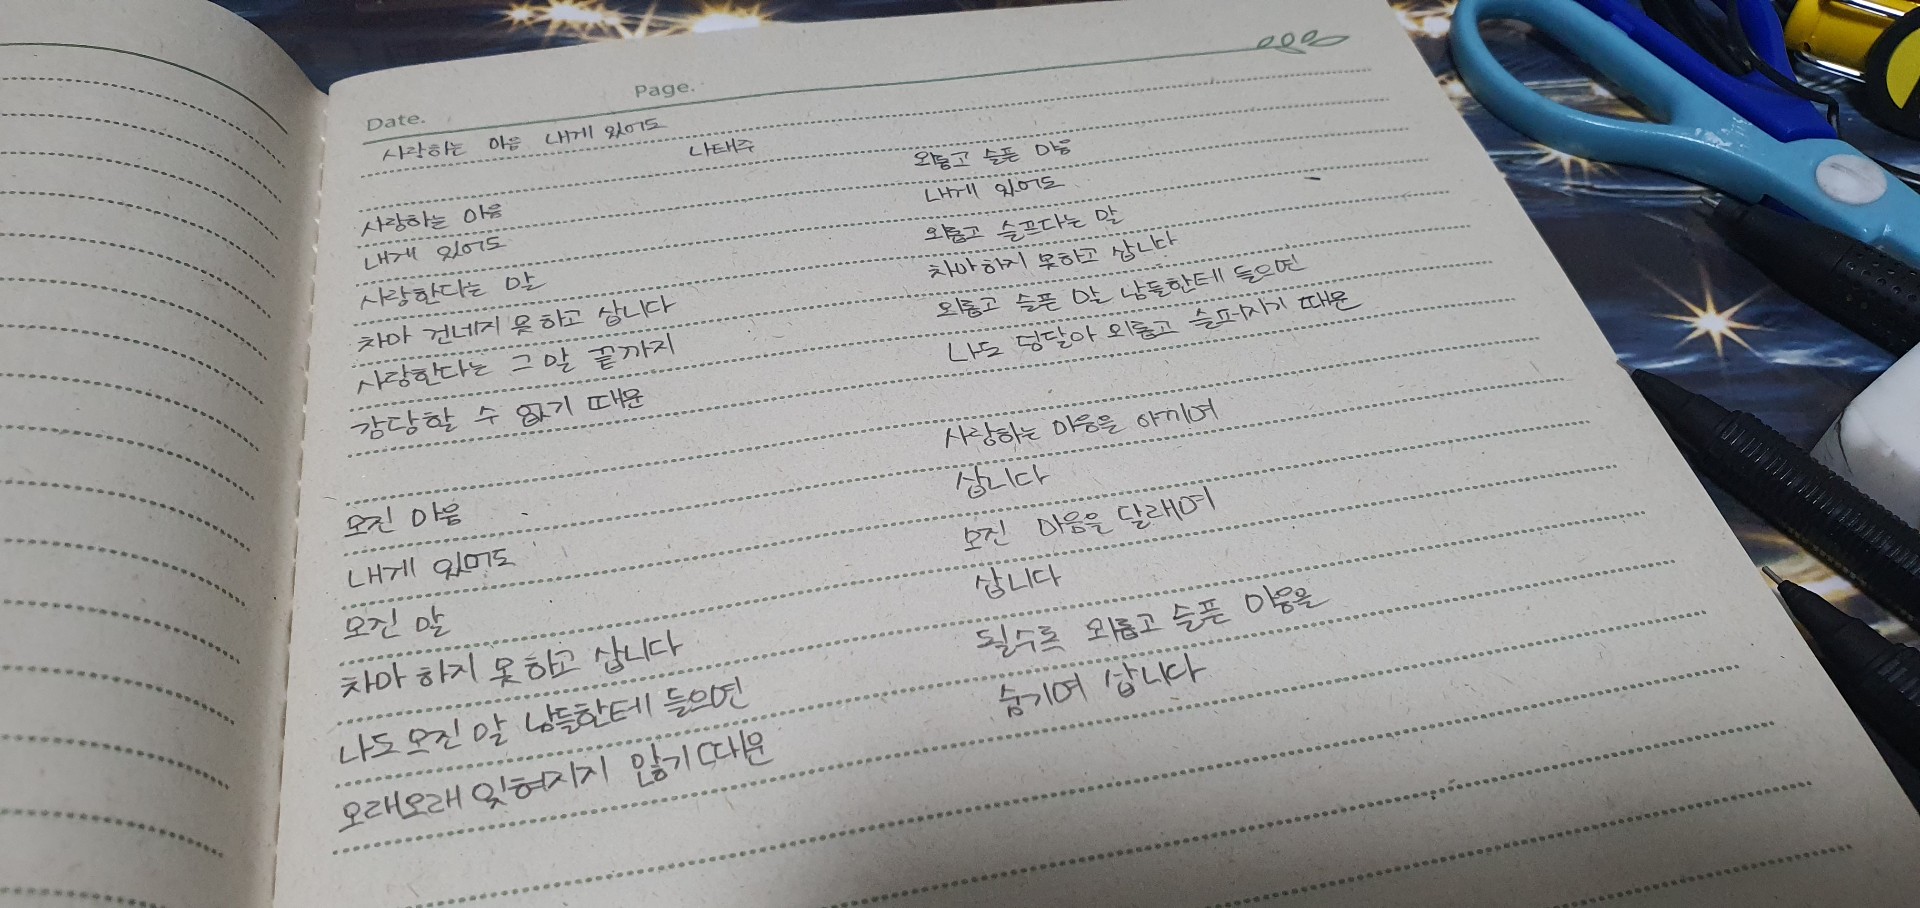 Date.
Page.
사랑하는 마음 내게 있어도
나태주
사랑하는 마음
내게 있어도
사랑한다는 말
차마 건네지 못하고 삽니다
사랑한다는 그 말 끝까지
감당할 수 없기 때문
모진 마음
내게 있어도
모진 말
차마 하지 못하고 삽니다
나도 모진 말 남들한테 들으면
오래오래 잊혀지지 않기 때문
외롭고 슬픈 마음
내게 있어도
외롭고 슬프다는 말
차마 하지 못하고 삽니다
외롭고 슬픈 말 남들한테 들으면
나도 덩달아 외롭고 슬퍼지기 때문
사랑하는 마음을 아끼며
삽니다
모진 마음을 달래며
삽니다
될수록 외롭고 슬픈 마음을
숨기며 삽니다